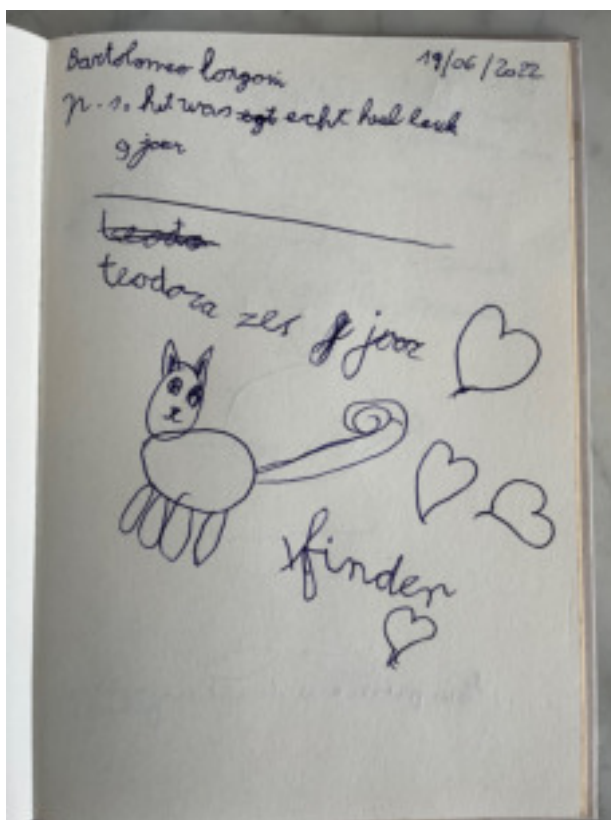 Bartolomeo Longoni 19/06/2022
p.s. het was egt echt heel leuk
9 jaar
teodo
teodora zes jaar
finder